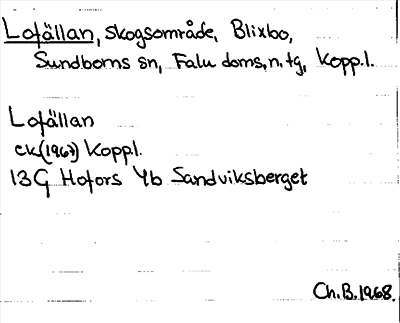 Lofällan, skogsområde, Blixbo,
Sundborns sn, Falu doms. n. tg, Kopp.l.
Lofällan
ek (1967) Kopp.l.
13G Hofors 4b Sandviksberget
Ch.B. 1968.